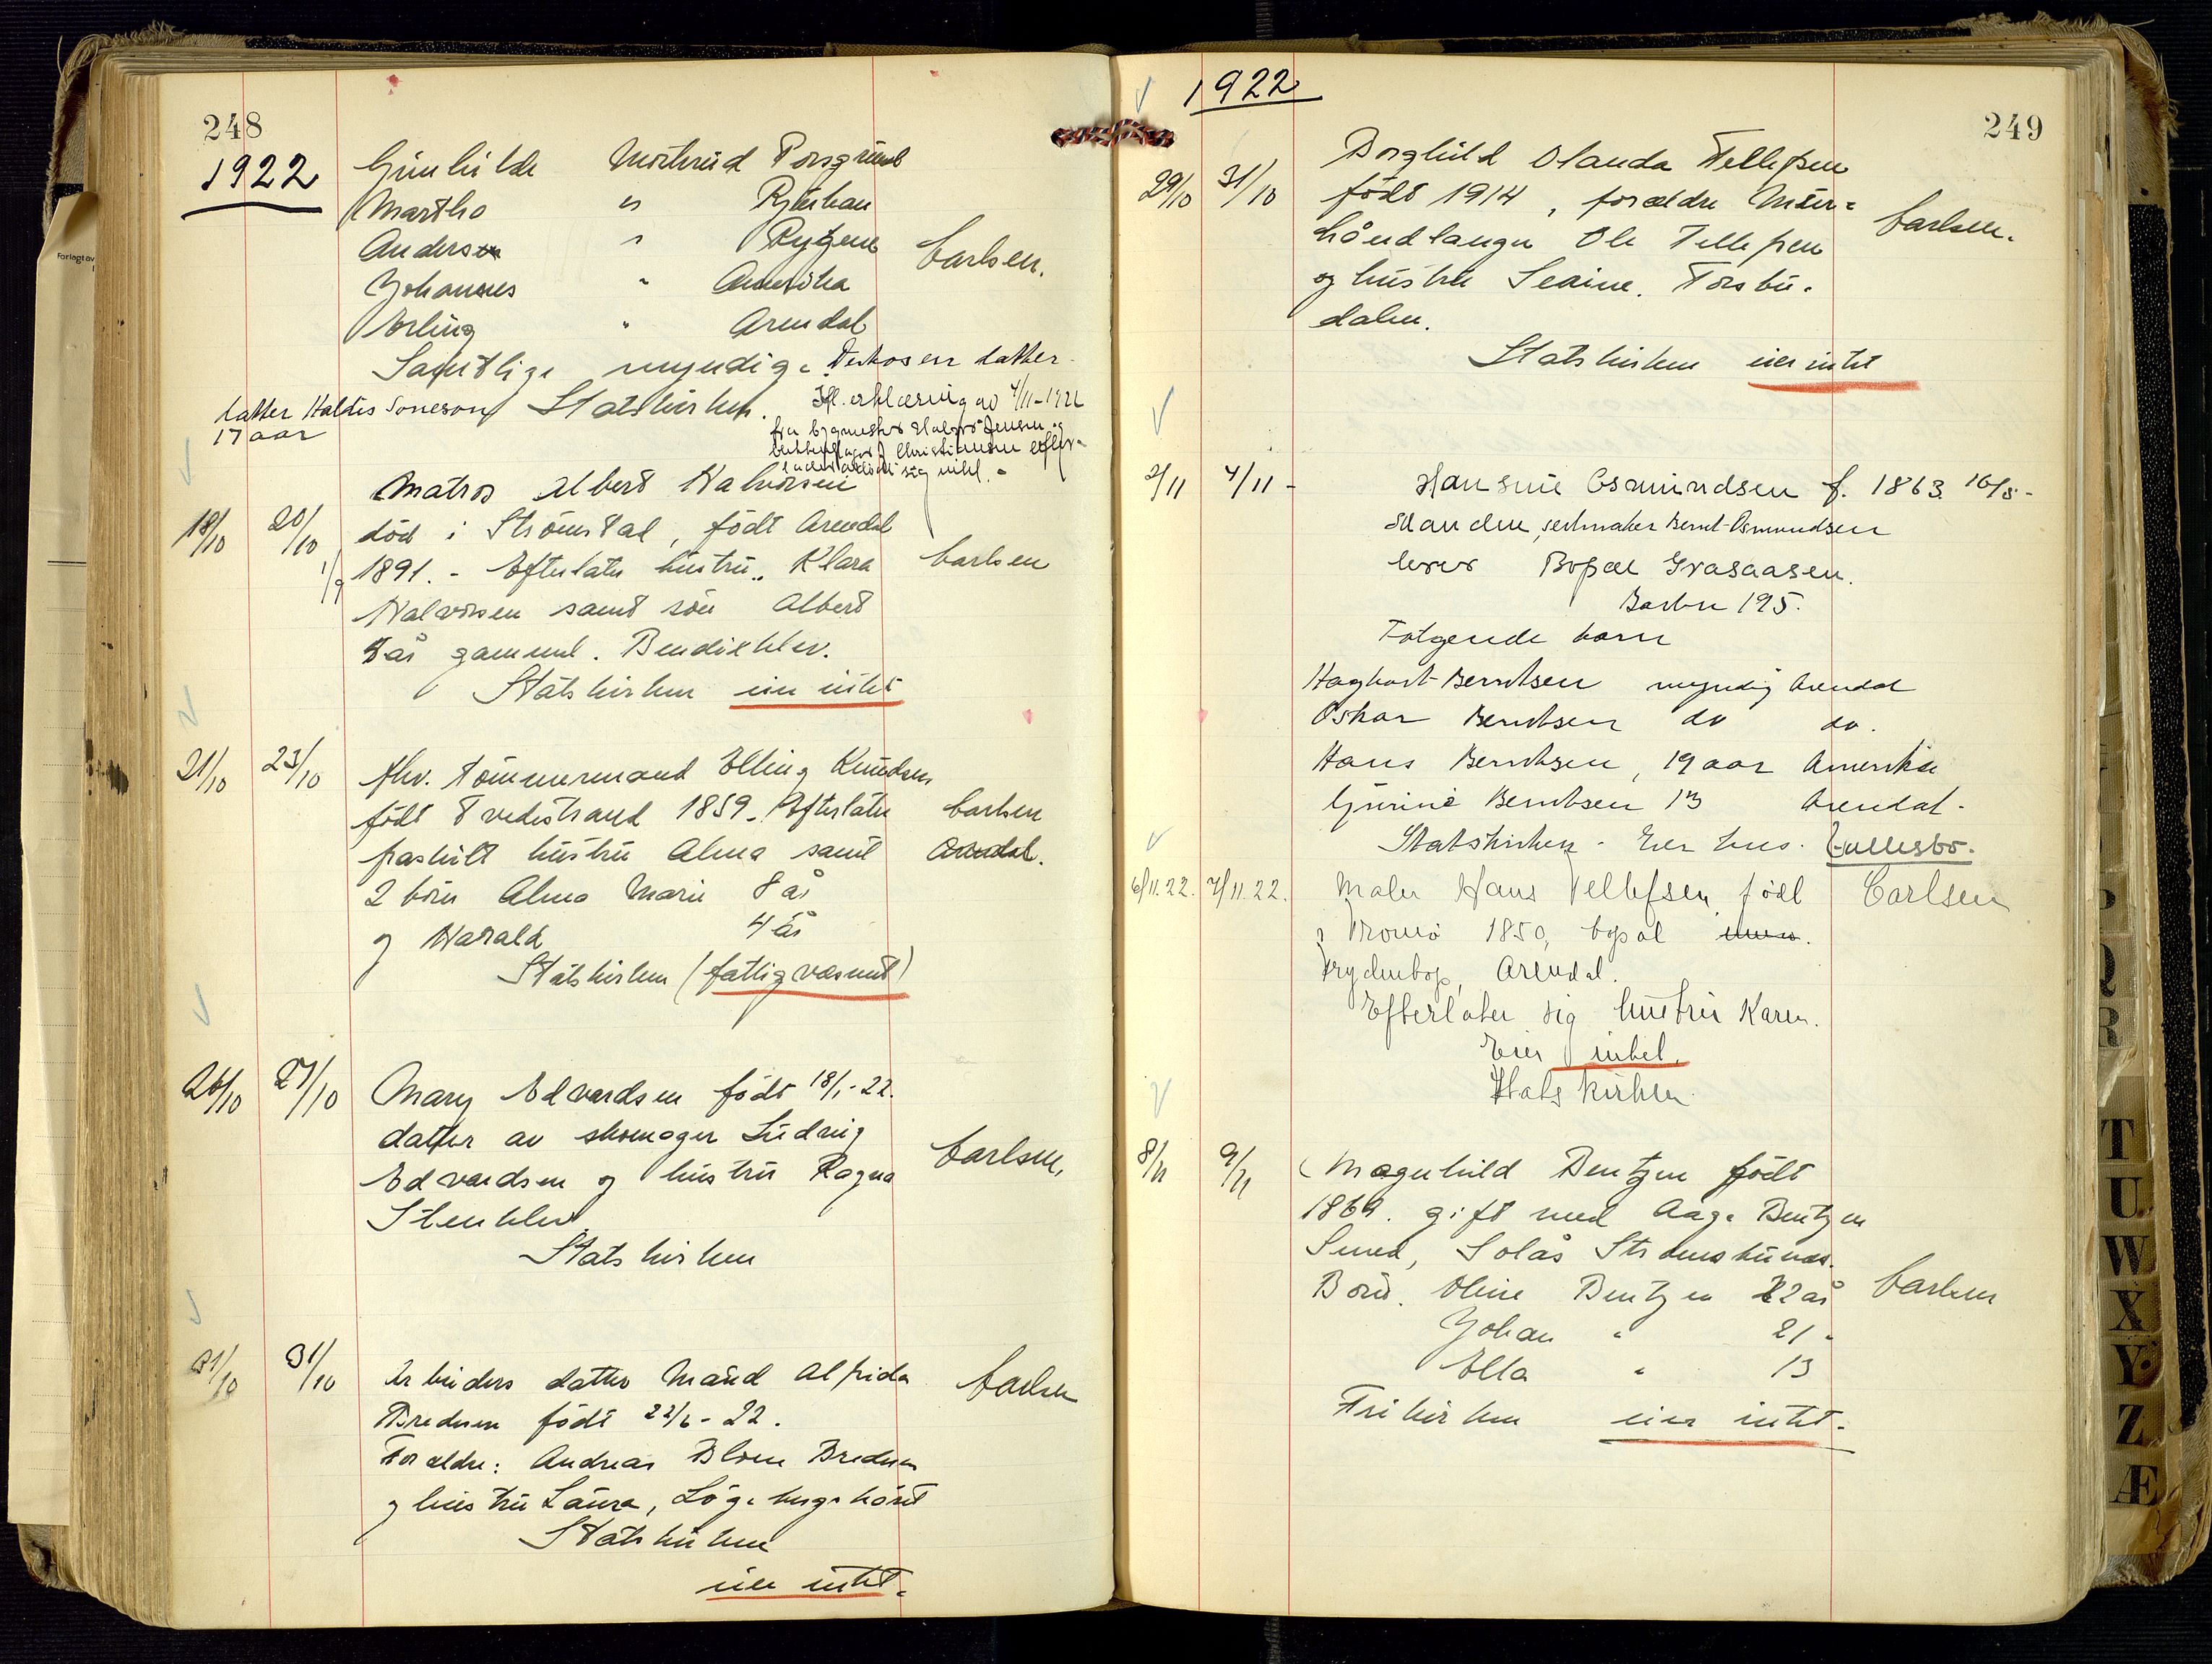 248
1922
Gunhilde Mørkrud Porsgrund
Martha " Rjukan
Anders " Rygene Carlsen.
Johannes " Amerika
Erling " Arendal
Samtlige myndige. datter
datter Haldis Soneson Statskirken. Ifl. erklæring av 4/11-1922
17 aar
fra Halvor Jensen og
Christiansen efter-
sig intet. -
Matros Albert Halvorsen
18/10 20/10 død i Strömstad, født Arendal
1/9 1891. - Efterlater hustru Klara Carlsen
Halvorsen samt søn Albert
år gammel. Bendikskl​ev.
Statskirken eier intet
21/10 23/10 fhv. Tømmermand Elling Knudsen
født Tvedestrand 1859. Efterlater Carlsen
fraskilt hustru Alma samt Arendal.
2 børn Alma Marie 8 år
og Harald 4 år
Statskirken (fattigvæsenet)
26/10 27/10 Mary Edvardsen født 18/1-22.
datter av skomager Ludvig
Edvardsen og hustru Ragna Carlsen,
Stenklev.
Statskirken
31/10 31/10 Arbeiders datter Maud Alfrida Carlsen
Bredesen født 22/6-22.
Forældre: Andreas Blom Bredesen
og hustru Laura,
Statskirken
eier intet.
1922
249
Borghild Olanda Tellefsen
29/10 31/10 født 1914, forældre Murer-
håndlanger Ole Tellefsen Carlsen.
og hustru Seaine. Torsbu-
dalen.
Statskirken eier intet
2/11 4/11 - Hansine Osmundsen f. 1863 16/5-
Manden, seilmaker Bernt Osmundsen
lever Bopæl Graasaasen.
Barbu 195.
Følgende barn
Haghart Berntsen myndig Arendal
Oskar Berntsen do do.
Hans Berntsen, 19 aar Amerika
Gurine Berntsen 13 Arendal.
Statskirken - Eier hus. Gullesbo.
6/11.22. 7/11.22. Maler Hans Tellefsen, født Carlsen
i Tromø 1850, bopæl
Frydenborg, Arendal.
Efterlater sig hustru Karen.
Eier intet.
Statskirken
8/11 9/11 Magnhild Bentzen født
1869. gift med Aage Bentzen
Smed, Solås
Børn. Oline Bentzen 22 år Carlsen
Johan " 21 "
Ella " 13
Frikirken eier intet.